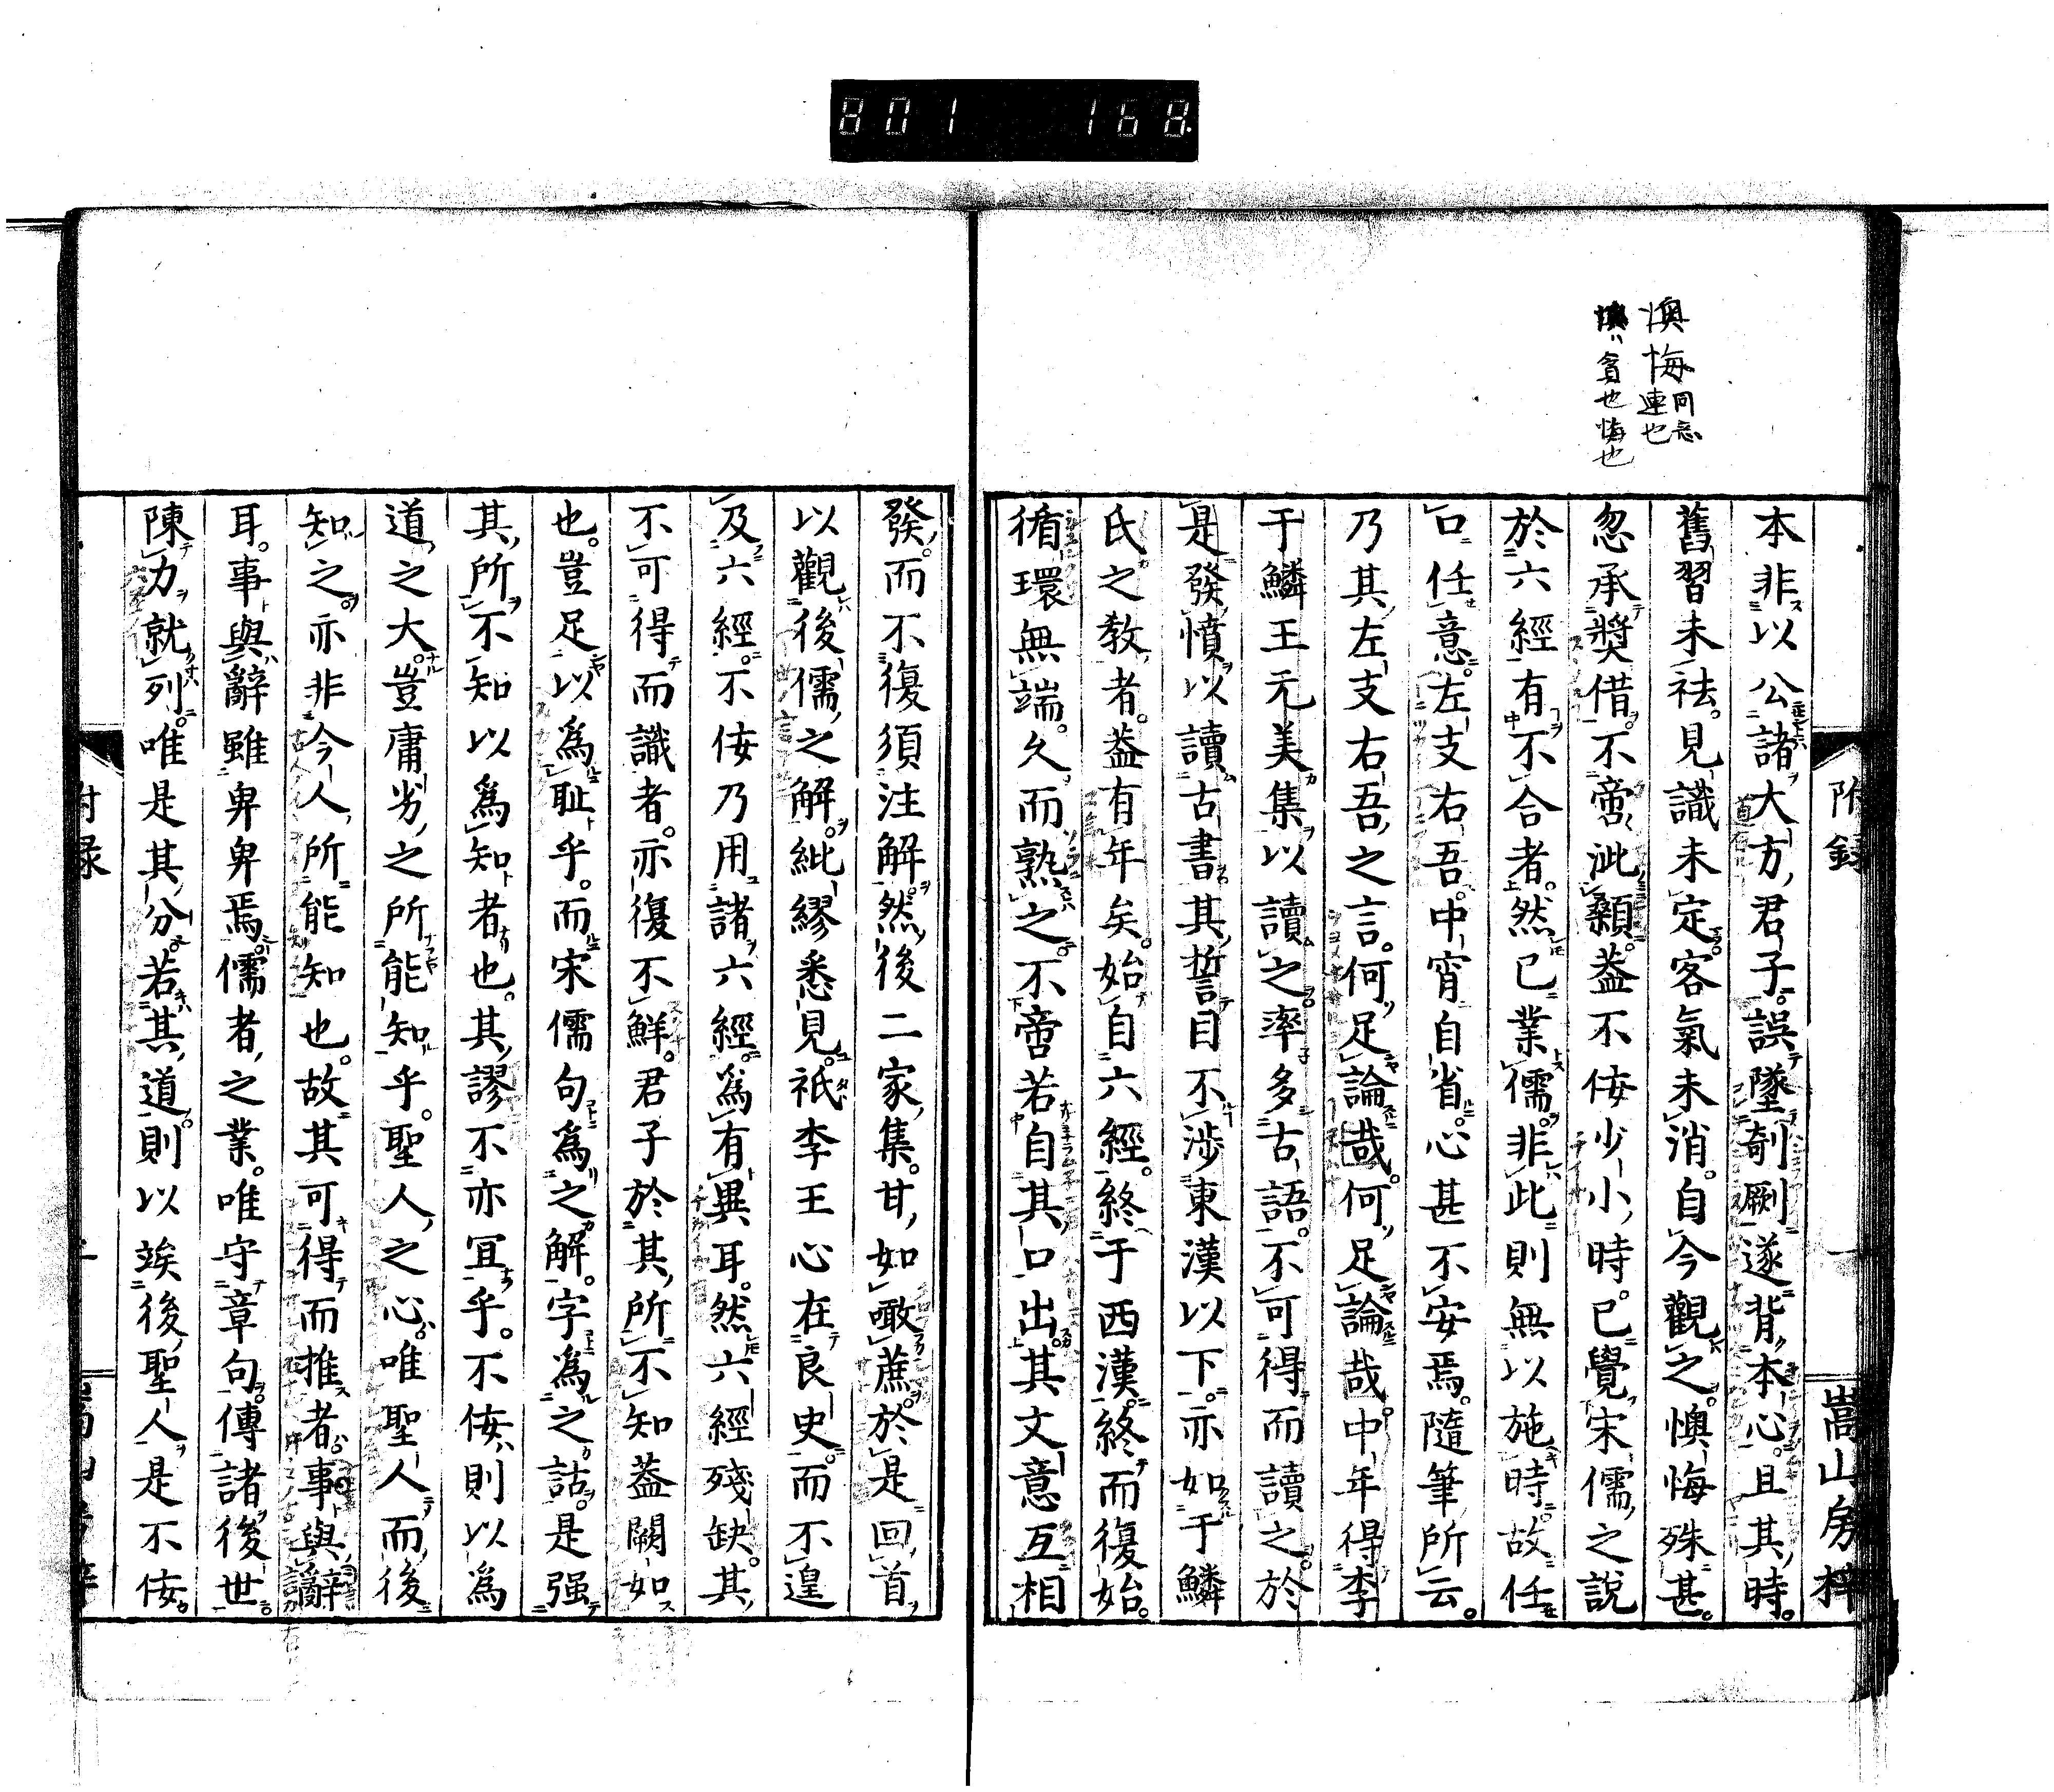 801 168
懊悔同忘
連也
懊ハ貪也悔也
附録 一 嵩山房梓
本非以公諸大方君子。誤墜剞劂遂背本心。且其時。
舊習未祛。見識未定。客氣未消。自今觀之。懊悔殊甚。
忽承奬借。不啻泚顙。蓋不佞少小時。已覺宋儒之說
於六經有不合者。然已業儒。非此則無以施時。故任
口任意。左支右吾。中宵自省。心甚不安焉。隨筆所云。
乃其左支右吾之言。何足論哉。何足論哉。中年得李
于鱗王元美集以讀之。率多古語。不可得而讀之。於
是發憤以讀古書。其誓目不涉東漢以下。亦如于鱗
氏之教者。蓋有年矣。始自六經。終于西漢。終而復始。
循環無端。久而熟之。不啻若自其口出。其文意互相
發。而不復須注解。然後二家集。甘如噉蔗。於是回首
以觀後儒之解。紕繆悉見。祇李王心在良史。而不遑
及六經。不佞乃用諸六經。爲有異耳。然六經殘缺。其
不可得而識者。亦復不鮮。君子於其所不知蓋闕如
也。豈足以爲耻乎。而宋儒句爲之解。字爲之詁。是强
其所不知以爲知者也。其謬不亦冝乎。不佞則以爲
道之大。豈庸劣之所能知乎。聖人之心。唯聖人而後
知之。亦非今人所能知也。故其可得而推者。事與辭
耳。事與辭雖卑卑焉。儒者之業。唯守章句。傳諸後世。
陳力就列。唯是其分。若其道則以竢後聖人。是不佞。
附録